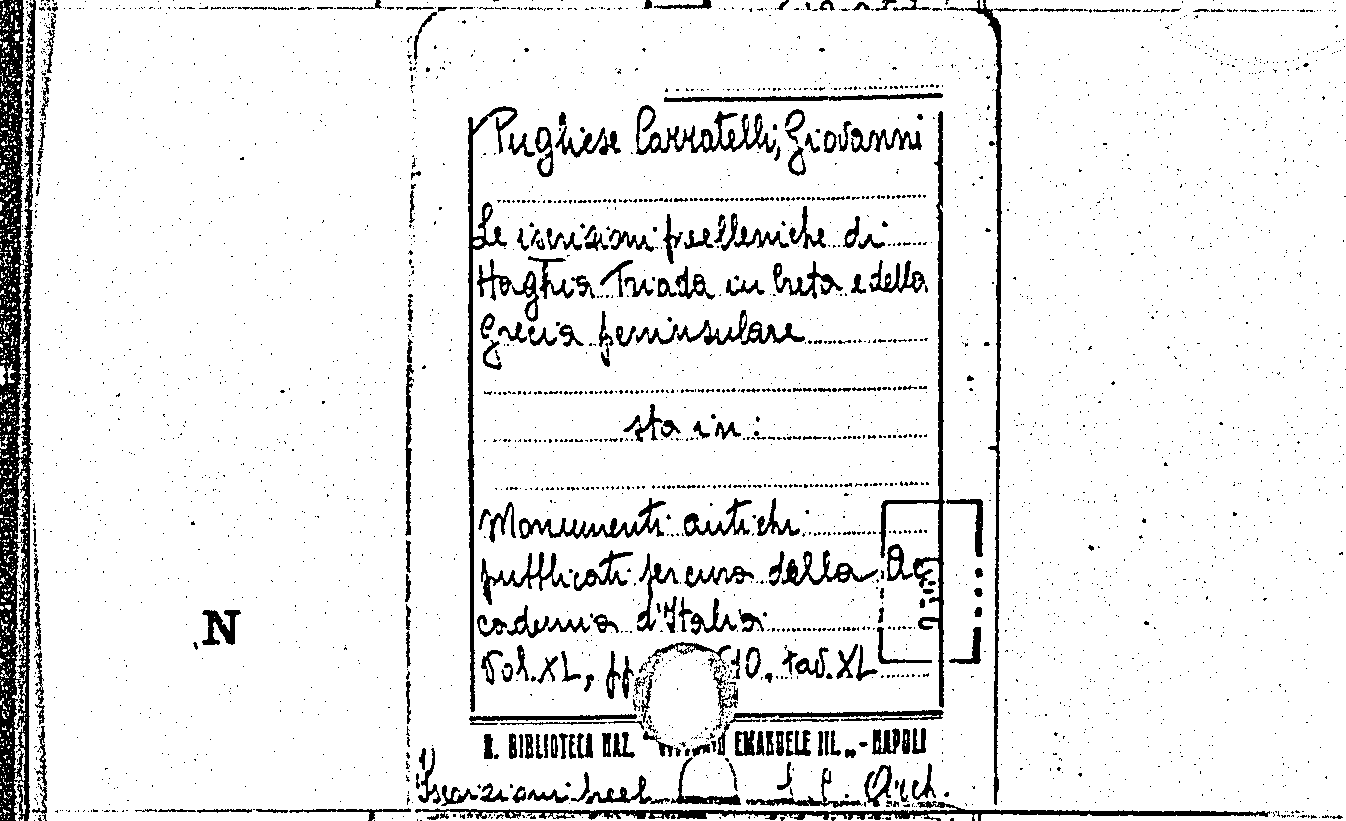 Pugliese Carratelli, Giovanni
Le iscrizioni preelleniche di
Haghia Triada in Creta e della
Grecia peninsulare
sta in:
Monumenti antichi
pubblicati per cura della Ac
cademia d'Italia
Vol. XL, pp 10, tav. XL
N
R. BIBLIOTECA NAZ. " EMANUELE III. „ - NAPOLI
Iscrizioni preel Arch.